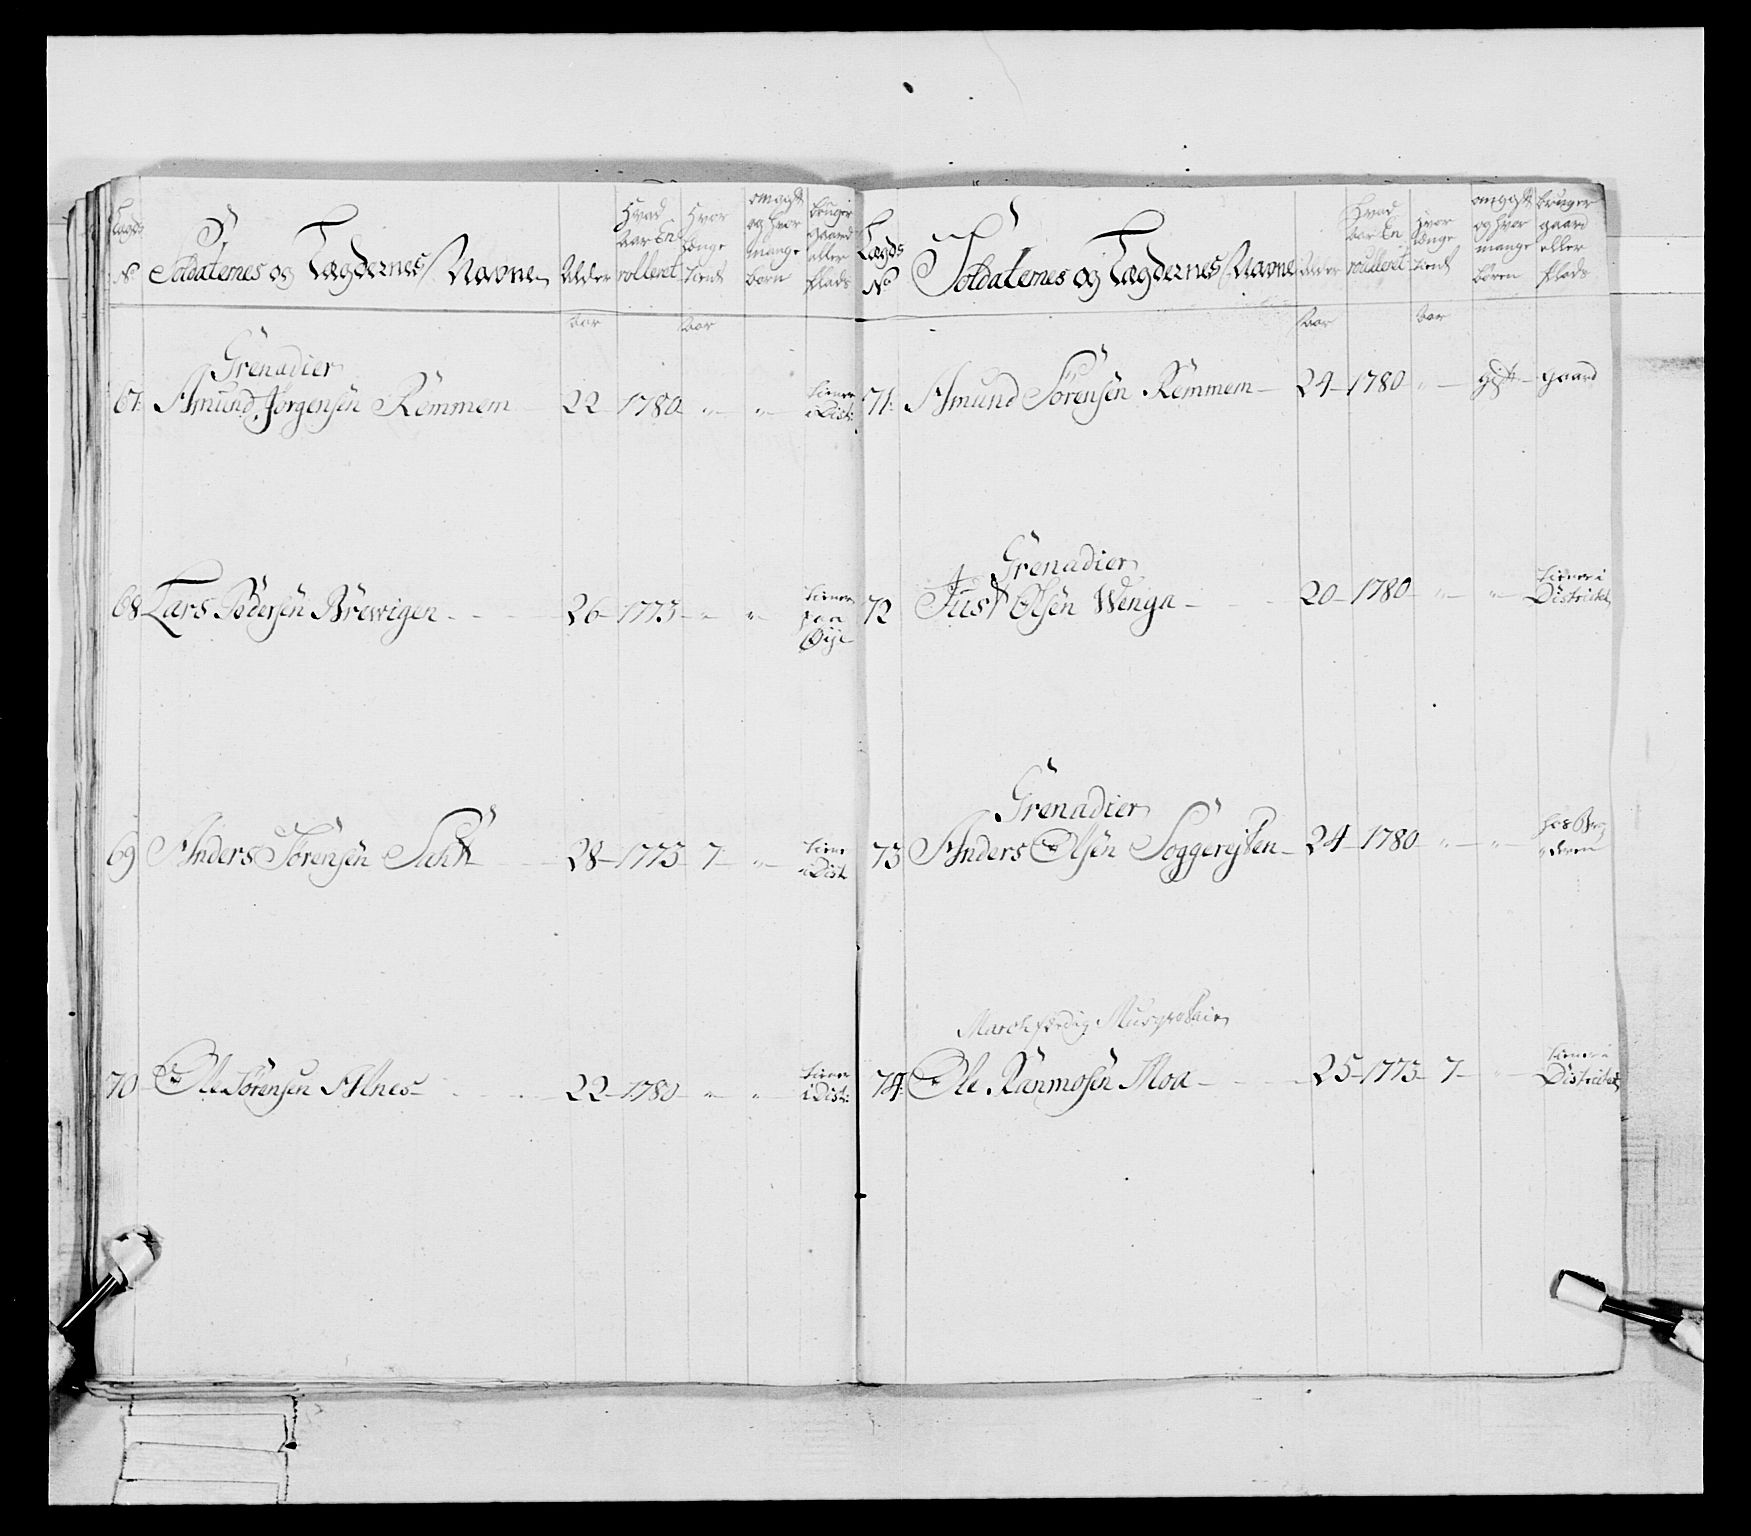 Lægds N° Soldaternes og Lægdernes Navne Alder Hvad Aar En rolleret Hvor længe tient om gift og hvor mange børn bruger gaard eller plads
Aar Aar
Grenadier
67. Amund Jørgensen Remmem 22 1780 " " tiener i Dist:
68 Lars Pedersen Brewigen 26 1773 " " tiener paa Øye
69 Anders Sørensen 28 1773 7 " tiener i Dist
70 Ole Sørensen Alnes 22 1780 " " tiener i Dist:
Lægds N° Soldaternes og Lægdernes Navne Alder Hvad Aar En roulleret Hvor længe tient om gift og hvor mange børen bruger gaard eller plads
Aar Aar
71. Amund Sørensen Remmem 24 1780 " gift gaard
Grenadier
72 Just Olsen Wenga 20 1780 " " tiener i Districtet
Grenadier
73 Anders Olsen 24 1780 " " hos
Marchfærdig
74. Ole Moa 25 1773 7 " tiener i Districtet